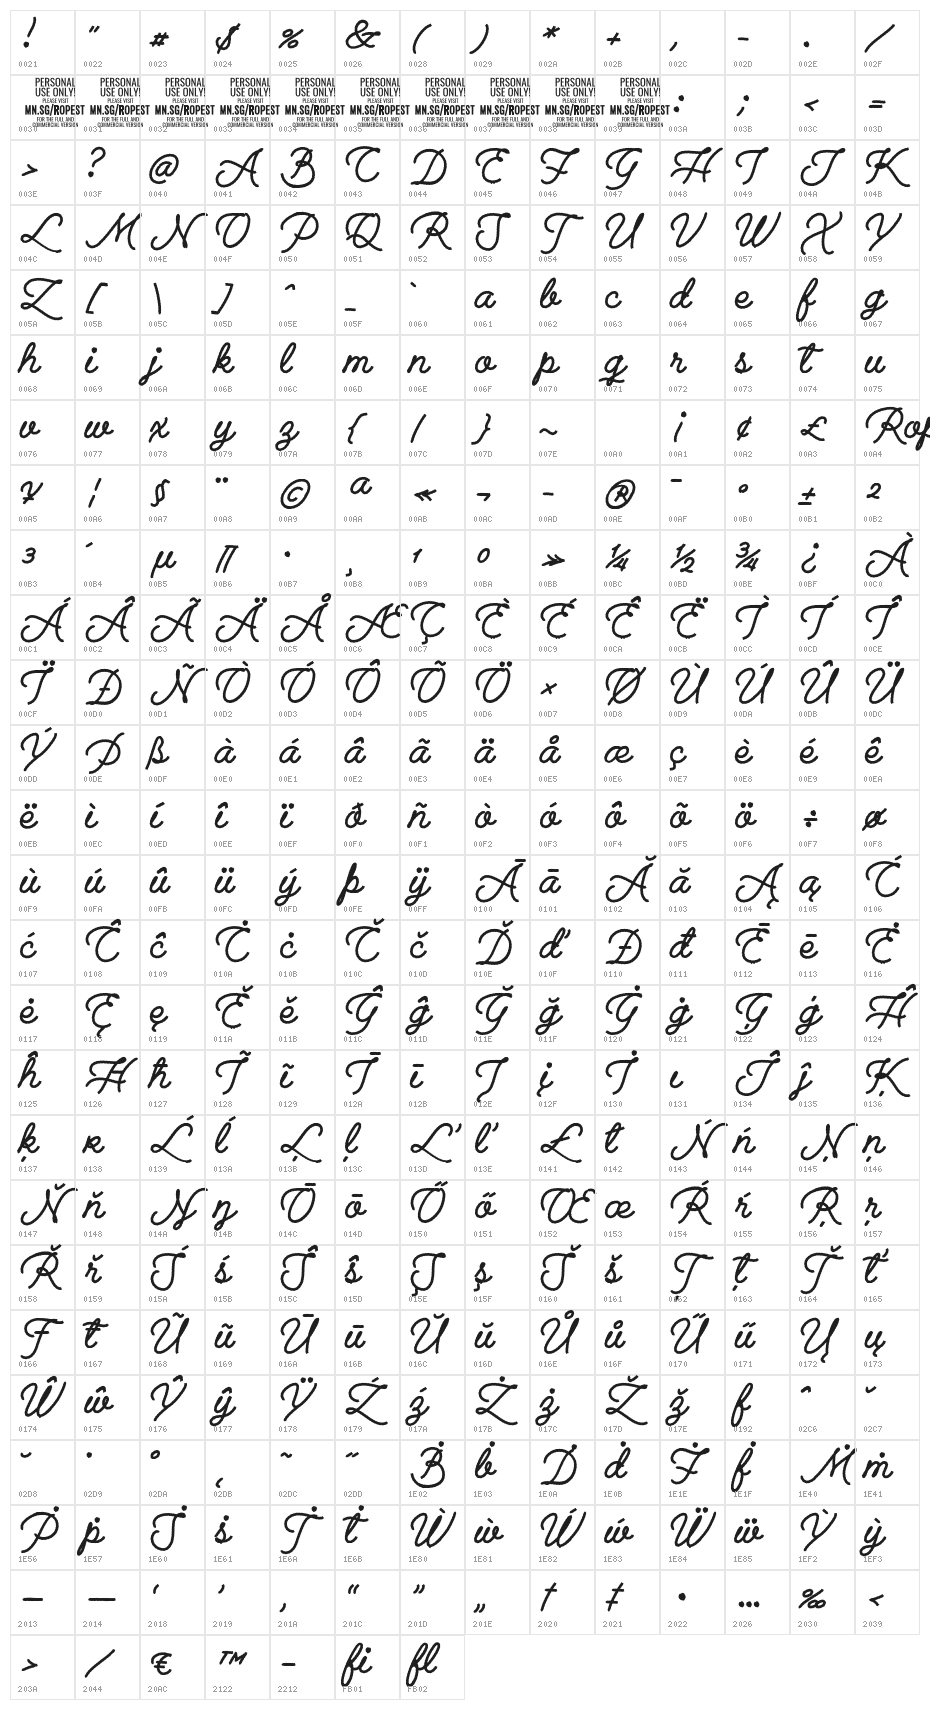 ! " # $ % & ( ) * + , - . /
0021 0022 0023 0024 0025 0026 0028 0029 002A 002B 002C 002D 002E 002F
PERSONAL PERSONAL PERSONAL PERSONAL PERSONAL PERSONAL PERSONAL PERSONAL PERSONAL PERSONAL
USE ONLY! USE ONLY! USE ONLY! USE ONLY! USE ONLY! USE ONLY! USE ONLY! USE ONLY! USE ONLY! USE ONLY!
PLEASE VISIT PLEASE VISIT PLEASE VISIT PLEASE VISIT PLEASE VISIT PLEASE VISIT PLEASE VISIT PLEASE VISIT PLEASE VISIT PLEASE VISIT
MN.SG/ROPEST MN.SG/ROPEST MN.SG/ROPEST MN.SG/ROPEST MN.SG/ROPEST MN.SG/ROPEST MN.SG/ROPEST MN.SG/ROPEST MN.SG/ROPEST MN.SG/ROPEST : ; < =
FOR THE FULL AND FOR THE FULL AND FOR THE FULL AND FOR THE FULL AND FOR THE FULL AND FOR THE FULL AND FOR THE FULL AND FOR THE FULL AND FOR THE FULL AND FOR THE FULL AND
COMMERCIAL VERSION COMMERCIAL VERSION COMMERCIAL VERSION COMMERCIAL VERSION COMMERCIAL VERSION COMMERCIAL VERSION COMMERCIAL VERSION COMMERCIAL VERSION COMMERCIAL VERSION COMMERCIAL VERSION
0030 0031 0032 0033 0034 0035 0036 0037 0038 0039 003A 003B 003C 003D
> ? @ A B C D E F G H I J K
003E 003F 0040 0041 0042 0043 0044 0045 0046 0047 0048 0049 004A 004B
L M N O P Q R S T U V W X Y
004C 004D 004E 004F 0050 0051 0052 0053 0054 0055 0056 0057 0058 0059
Z [ \ ] ^ _ ` a b c d e f g
005A 005B 005C 005D 005E 005F 0060 0061 0062 0063 0064 0065 0066 0067
h i j k l m n o p q r s t u
0068 0069 006A 006B 006C 006D 006E 006F 0070 0071 0072 0073 0074 0075
v w x y z { | } ~ ¡ ¢ £ Rop
0076 0077 0078 0079 007A 007B 007C 007D 007E 00A0 00A1 00A2 00A3 00A4
¥ ¦ § ¨ © ª « ¬ - ® ¯ ° ± ²
00A5 00A6 00A7 00A8 00A9 00AA 00AB 00AC 00AD 00AE 00AF 00B0 00B1 00B2
³ ´ µ ¶ · ¸ ¹ º » ¼ ½ ¾ ¿ À
00B3 00B4 00B5 00B6 00B7 00B8 00B9 00BA 00BB 00BC 00BD 00BE 00BF 00C0
Á Â Ã Ä Å Æ Ç È É Ê Ë Ì Í Î
00C1 00C2 00C3 00C4 00C5 00C6 00C7 00C8 00C9 00CA 00CB 00CC 00CD 00CE
Ï Ð Ñ Ò Ó Ô Õ Ö × Ø Ù Ú Û Ü
00CF 00D0 00D1 00D2 00D3 00D4 00D5 00D6 00D7 00D8 00D9 00DA 00DB 00DC
Ý Þ ß à á â ã ä å æ ç è é ê
00DD 00DE 00DF 00E0 00E1 00E2 00E3 00E4 00E5 00E6 00E7 00E8 00E9 00EA
ë ì í î ï ð ñ ò ó ô õ ö ÷ ø
00EB 00EC 00ED 00EE 00EF 00F0 00F1 00F2 00F3 00F4 00F5 00F6 00F7 00F8
ù ú û ü ý þ ÿ Ā ā Ă ă Ą ą Ć
00F9 00FA 00FB 00FC 00FD 00FE 00FF 0100 0101 0102 0103 0104 0105 0106
ć Ĉ ĉ Ċ ċ Č č Ď ď Đ đ Ē ē Ė
0107 0108 0109 010A 010B 010C 010D 010E 010F 0110 0111 0112 0113 0116
ė Ę ę Ě ě Ĝ ĝ Ğ ğ Ġ ġ Ģ ģ Ĥ
0117 0118 0119 011A 011B 011C 011D 011E 011F 0120 0121 0122 0123 0124
ĥ Ħ ħ Ĩ ĩ Ī ī Į į İ ı Ĵ ĵ Ķ
0125 0126 0127 0128 0129 012A 012B 012E 012F 0130 0131 0134 0135 0136
ķ ĸ Ĺ ĺ Ļ ļ Ľ ľ Ł ł Ń ń Ņ ņ
0137 0138 0139 013A 013B 013C 013D 013E 0141 0142 0143 0144 0145 0146
Ň ň Ŋ ŋ Ō ō Ő ő Œ œ Ŕ ŕ Ŗ ŗ
0147 0148 014A 014B 014C 014D 0150 0151 0152 0153 0154 0155 0156 0157
Ř ř Ś ś Ŝ ŝ Ş ş Š š Ţ ţ Ť ť
0158 0159 015A 015B 015C 015D 015E 015F 0160 0161 0162 0163 0164 0165
Ŧ ŧ Ũ ũ Ū ū Ŭ ŭ Ů ů Ű ű Ų ų
0166 0167 0168 0169 016A 016B 016C 016D 016E 016F 0170 0171 0172 0173
Ŵ ŵ Ŷ ŷ Ÿ Ź ź Ż ż Ž ž ƒ ˆ ˇ
0174 0175 0176 0177 0178 0179 017A 017B 017C 017D 017E 0192 02C6 02C7
˘ ˙ ˚ ˛ ˜ ˝ Ḃ ḃ Ḋ ḋ Ḟ ḟ Ṁ ṁ
02D8 02D9 02DA 02DB 02DC 02DD 1E02 1E03 1E0A 1E0B 1E1E 1E1F 1E40 1E41
Ṗ ṗ Ṡ ṡ Ṫ ṫ Ẁ ẁ Ẃ ẃ Ẅ ẅ Ỳ ỳ
1E56 1E57 1E60 1E61 1E6A 1E6B 1E80 1E81 1E82 1E83 1E84 1E85 1EF2 1EF3
– — ‘ ’ ‚ “ ” „ † ‡ • … ‰ ‹
2013 2014 2018 2019 201A 201C 201D 201E 2020 2021 2022 2026 2030 2039
› ⁄ € ™ − ﬁ ﬂ
203A 2044 20AC 2122 2212 FB01 FB02